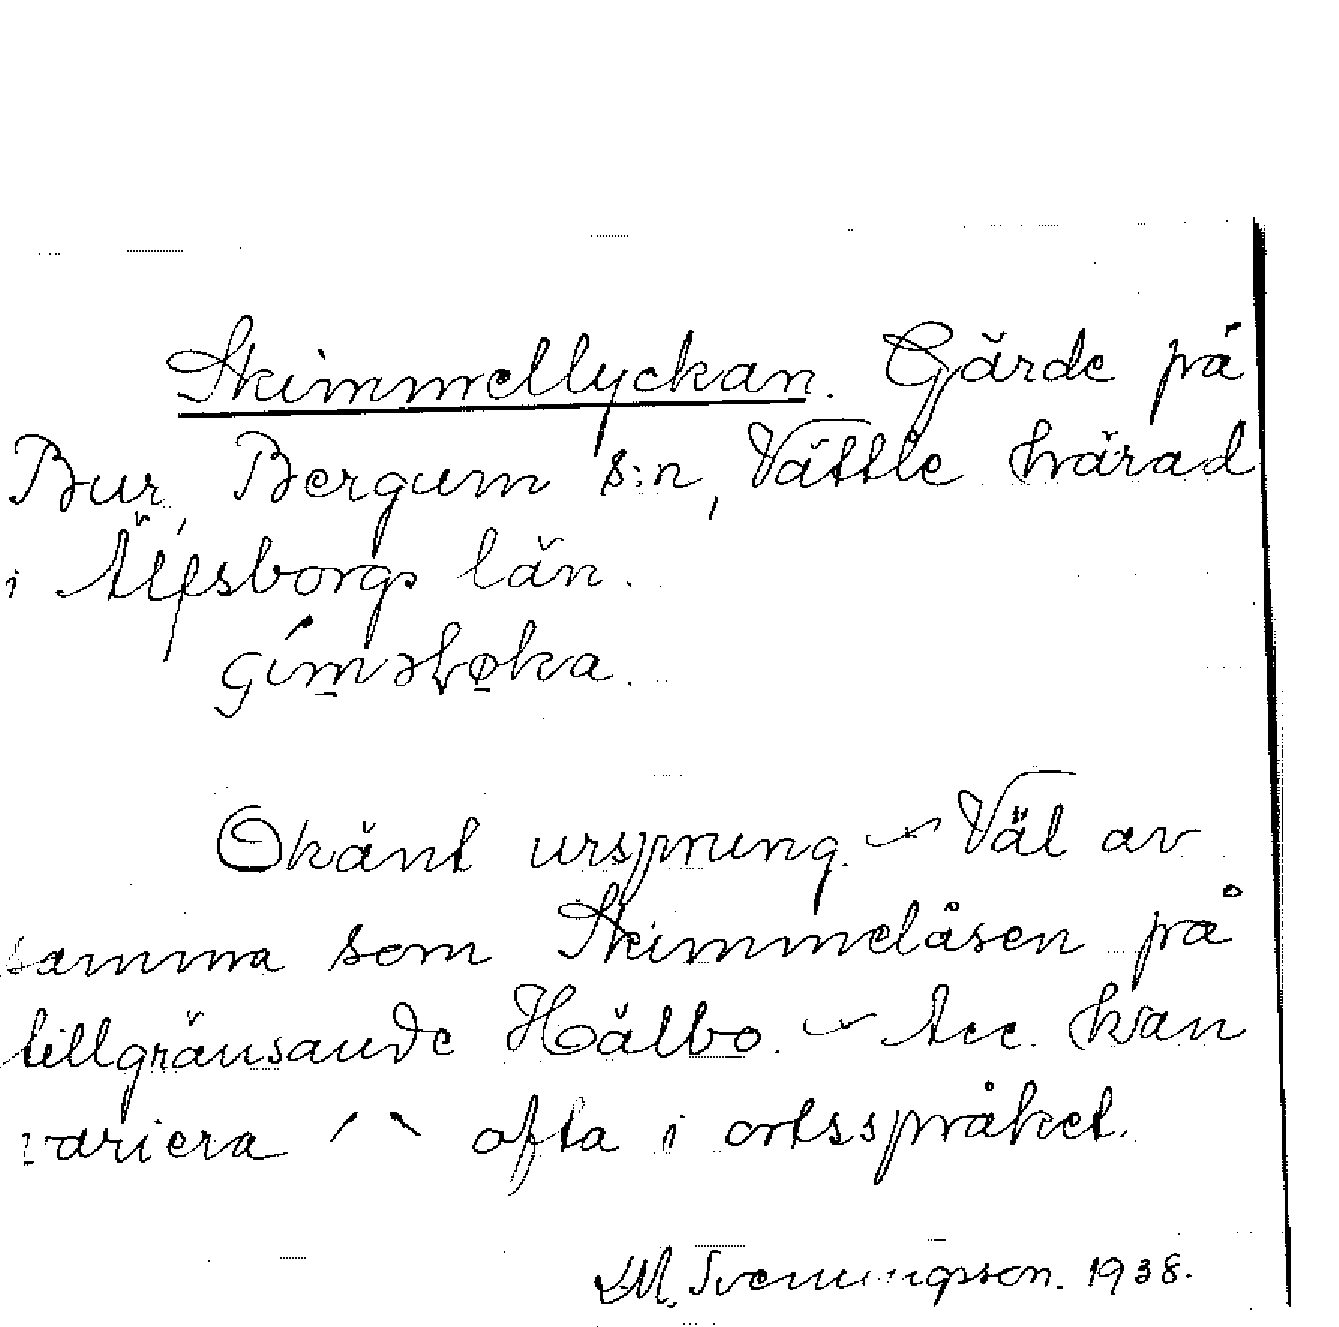 Skimmellyckan. Gärde på
Bur, Bergum s:n, Vättle härad
i Älfsborgs län.
Okänt ursprung. – Väl av
samma som Skimmelåsen på
tillgränsande Hälbo. – Acc. kan
variera ´ ` ofta i ortsspråket.
1938.